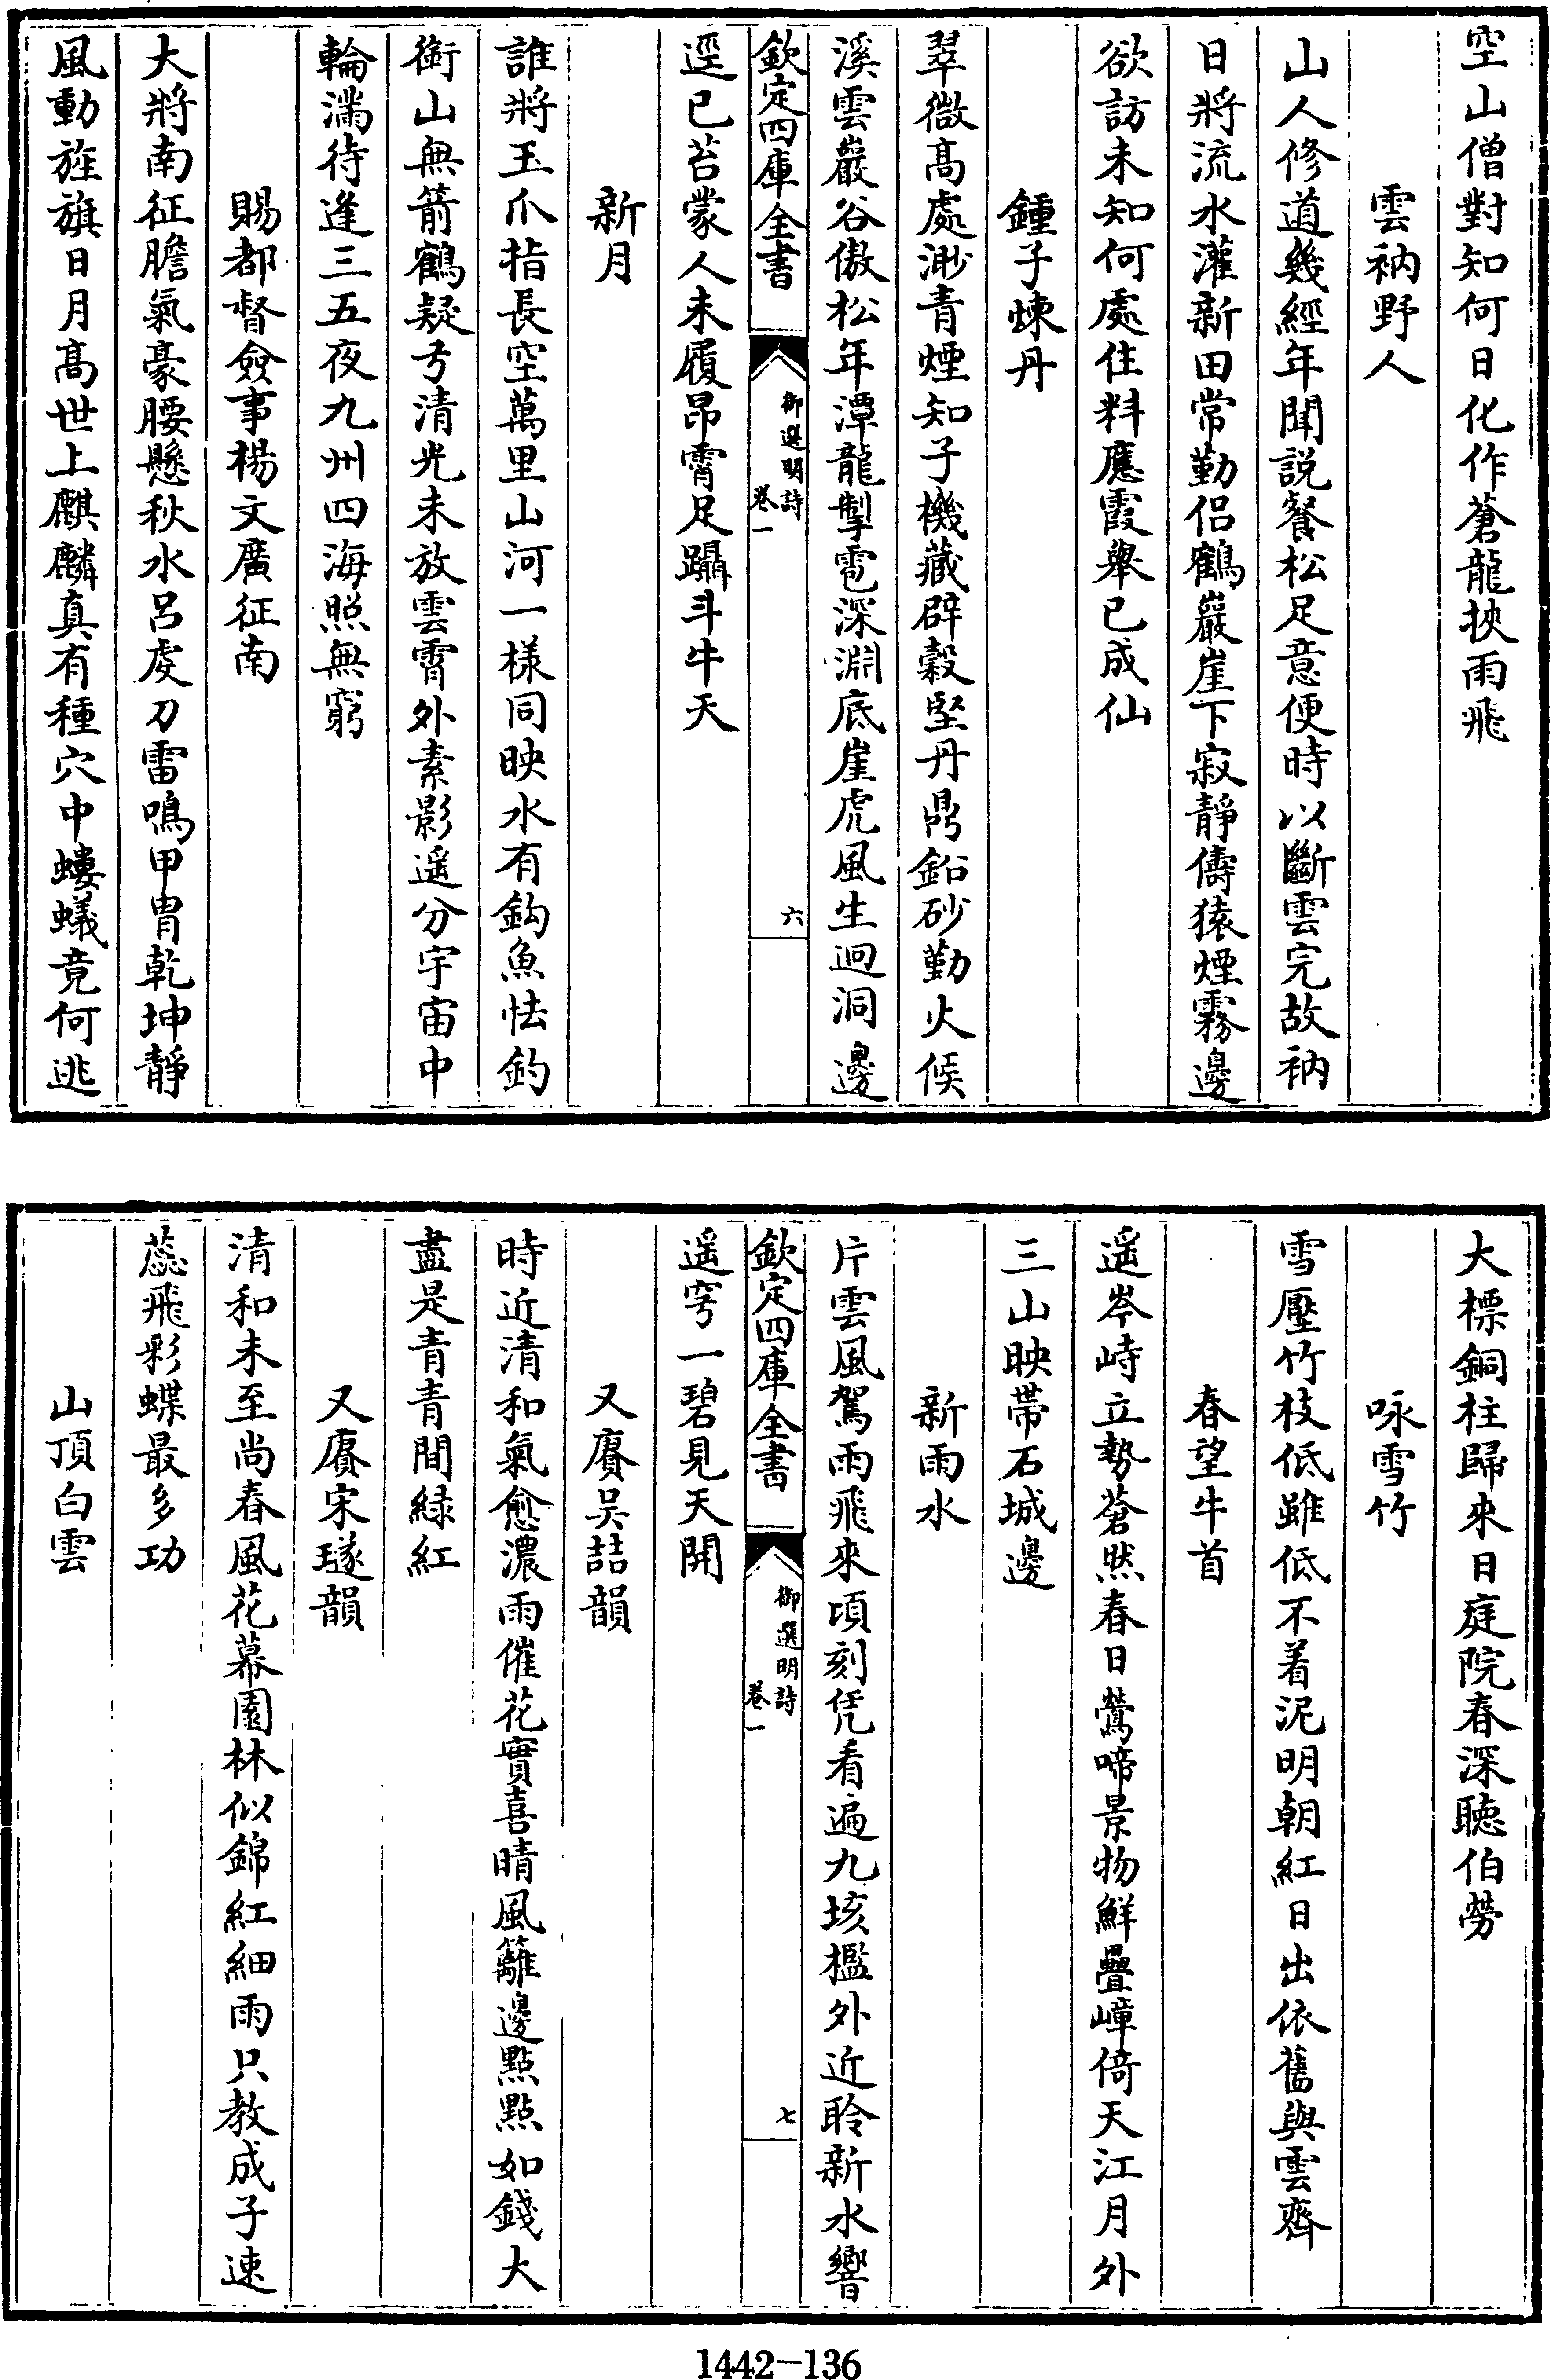 空山僧對知何日化作蒼龍挾雨飛
雲衲野人
山人修道幾經年聞説餐松足意便時以斷雲完故衲
日將流水灌新田常勤侣鶴巖崖下寂靜儔猿煙霧邊
欲訪未知何處住料應霞舉已成仙
鍾子煉丹
翠微髙處渺青煙知子機藏辟穀堅丹鼎鉛砂勤火候
溪雲巖谷傲松年潭龍掣雹深淵底崖虎風生迥洞邊
欽定四庫全書
御選明詩
卷一
六
逕已苔蒙人未履昂霄足躡斗牛天
新月
誰將玉爪掐長空萬里山河一様同映水有鈎魚怯釣
銜山無箭鶴疑弓清光未放雲霄外素影遥分宇宙中
輪滿待逢三五夜九州四海照無窮
賜都督僉事楊文廣征南
大將南征膽氣豪腰懸秋水吕虔刀雷鳴甲胄乾坤靜
風動旌旗日月髙世上麒麟真有種穴中螻蟻竟何逃
大標銅柱歸來日庭院春深聴伯勞
咏雪竹
雪壓竹枝低雖低不着泥明朝紅日出依舊與雲齊
春望牛首
遥岑峙立勢蒼然春日鶯啼景物鮮疊嶂倚天江月外
三山映帶石城邊
新雨水
片雲風駕雨飛來頃刻凭看遍九垓檻外近聆新水響
欽定四庫全書
御選明詩
卷一
七
遥穹一碧見天開
又賡吴喆韻
時近清和氣愈濃雨催花實喜晴風籬邊點點如錢大
盡是青青間緑紅
又賡宋璲韻
清和未至尚春風花幕園林似錦紅細雨只教成子速
蕊飛彩蝶最多功
山頂白雲
1442-136